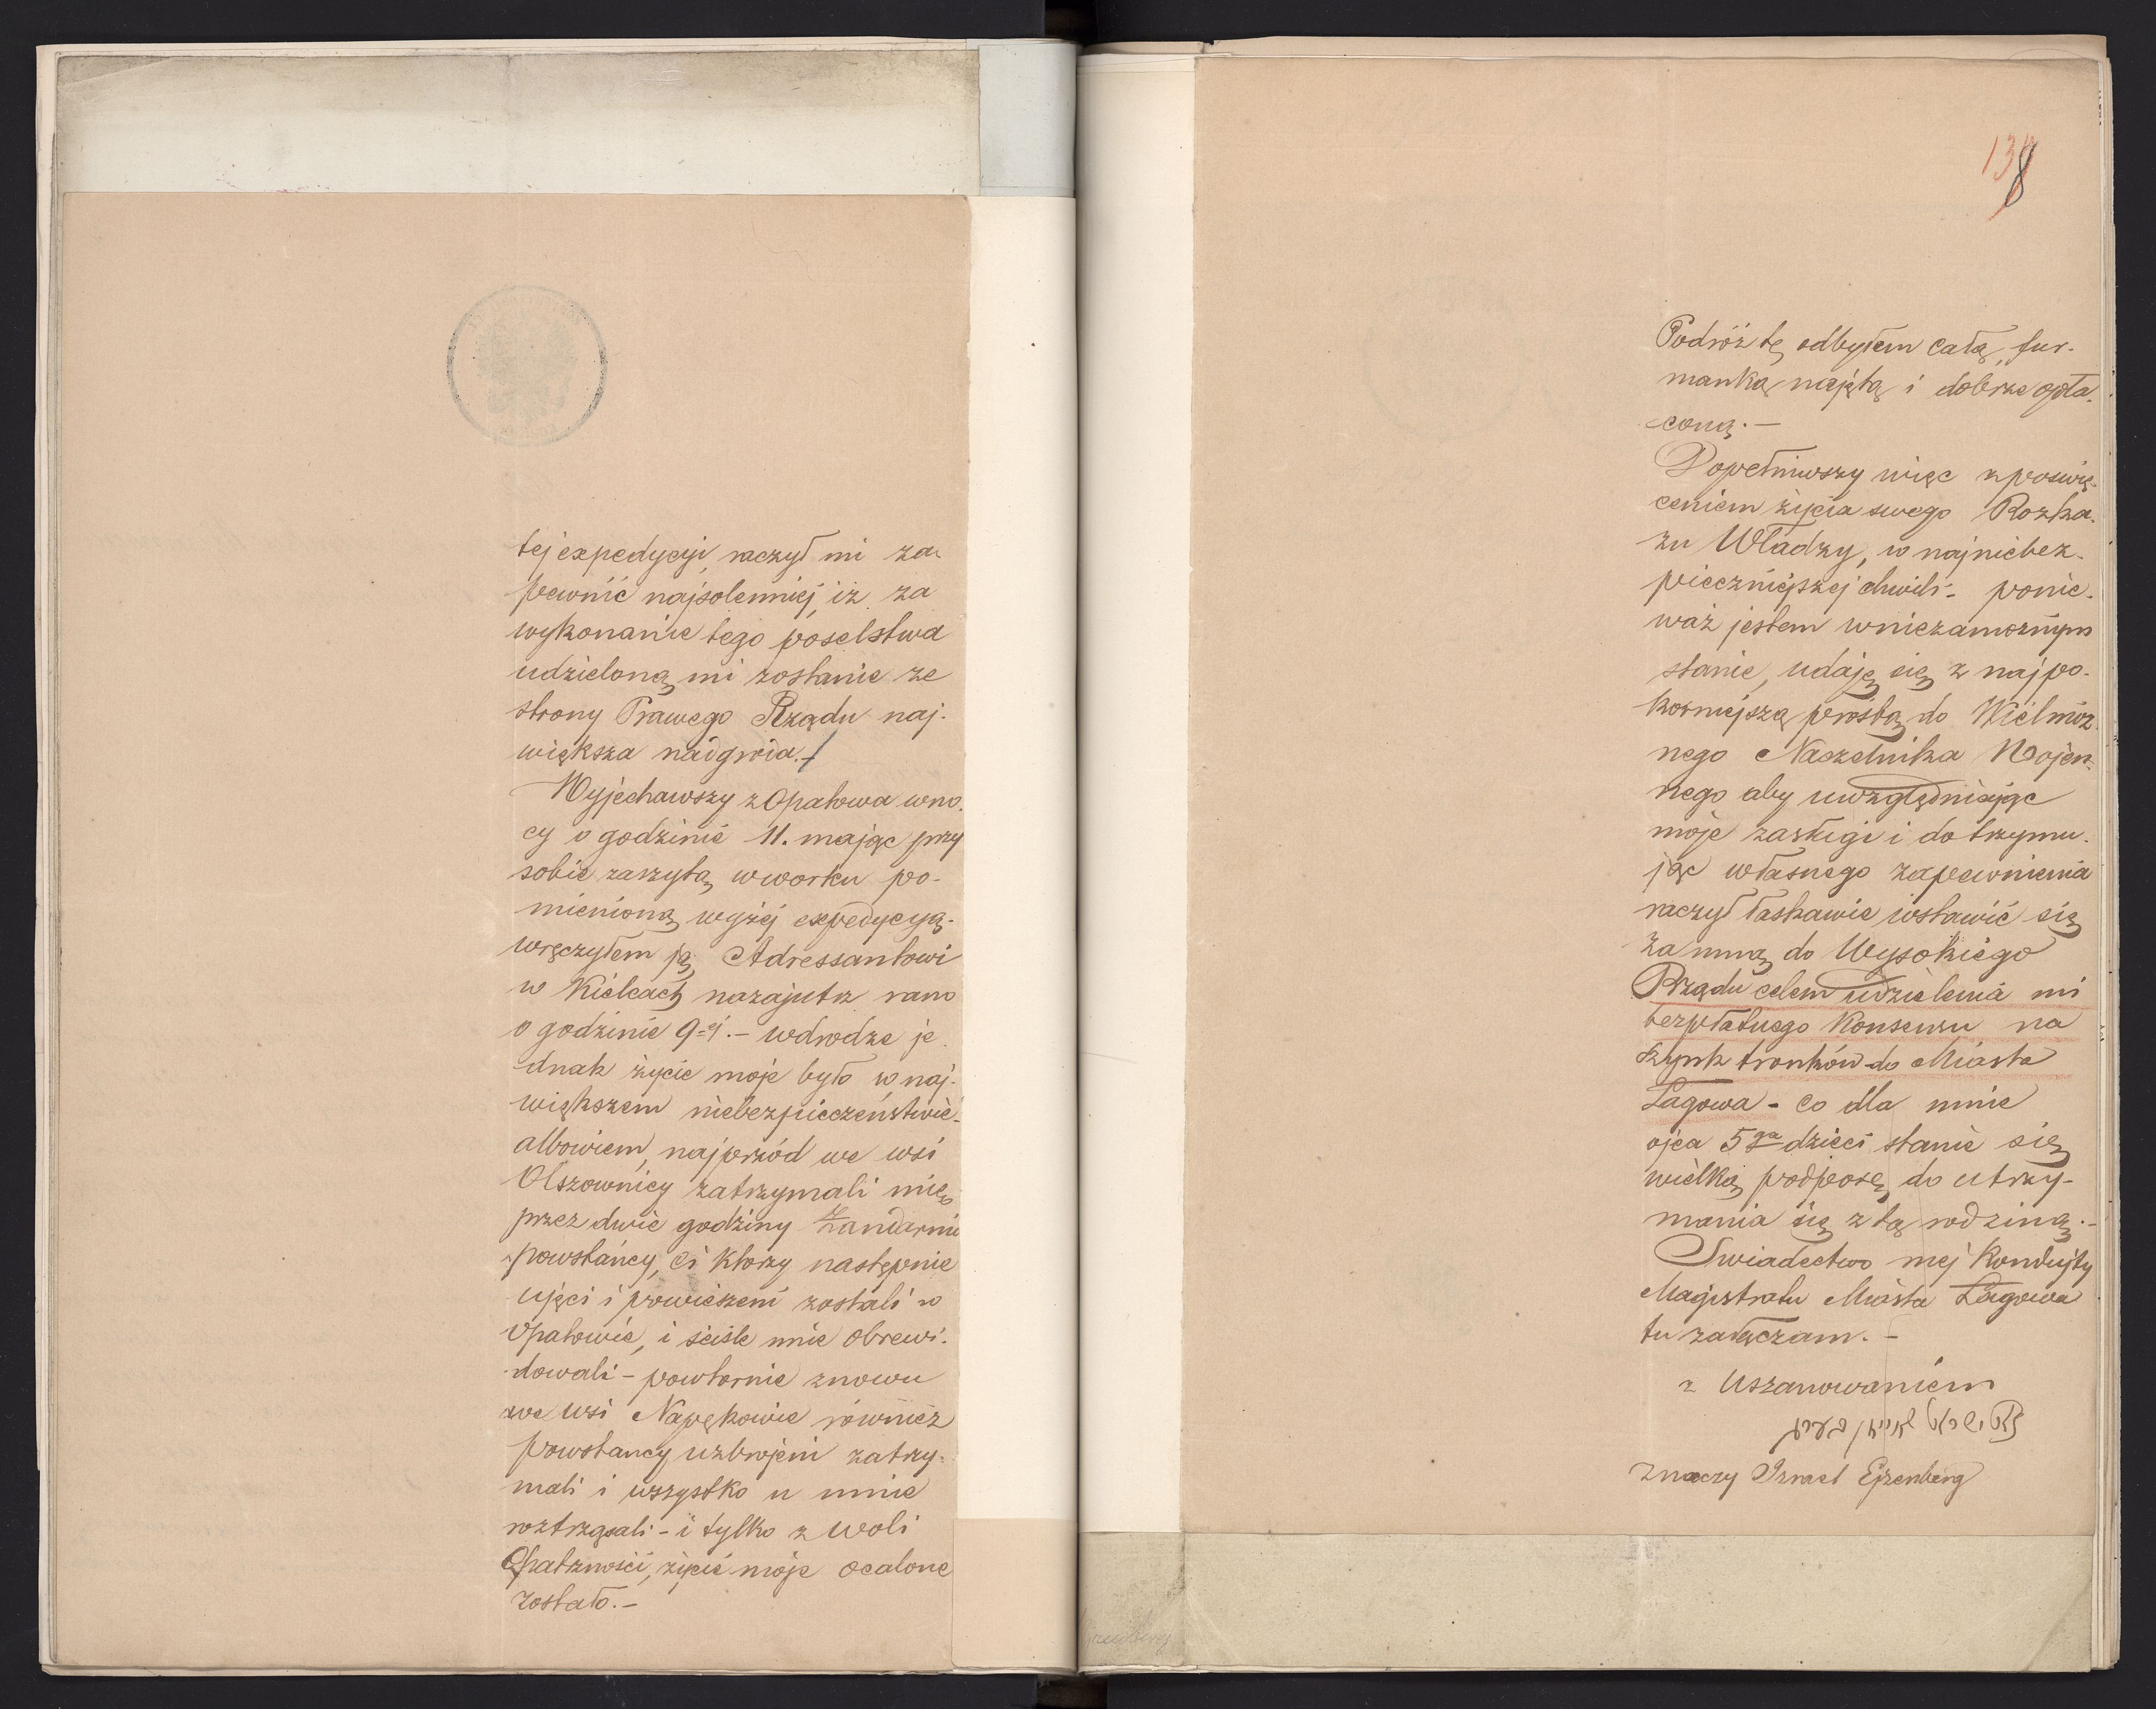 tej expedycyi, raczył mi za-
pewnić najsolenniej, iż za
wykonanie tego poselstwa
udzieloną mi zostanie ze
strony Prawego Rządu naj-
większa nadgroda.-
Wyjechawszy z Opatowa w no-
cy o godzinie 11. mając przy
sobie zaszytą w worku po-
mienioną wyżej expedycyą-
wręczyłem ją Adressantowi
w Kielcach nazajutrz rano
o godzinie 9-ej.- w drodze je-
dnak życie moje było w naj-
większem niebezpieczeństwie-
albowiem, najprzód we wsi
Olszownicy zatrzymali mię
przez dwie godziny Żandarmi
powstańcy, ci którzy następnie
ujęci i powieszeni zostali w
Opatowie, i ściśle mnie obrewi-
dowali - powtornie znowu
we wsi Napękowie również
powstancy uzbrojeni zatrzy-
mali i wszystko u mnie
roztrząsali - i tylko z woli
Opatrzności, życie moje ocalone
zostało.-
138
Podróż tę odbyłem całą, fur-
manką najętą i dobrze opła-
coną.-
Dopełniwszy więc z poświę-
ceniem życia swego Rozka-
zu Władzy, w najniebez-
pieczniejszej chwili - ponie-
waż jestem w niezamożnym
stanie, udaję się z najpo-
korniejszą prośbą do Wielmoż-
nego Naczelnika Wojen-
nego aby uwzględniając
moje zasługi i dotrzymu-
jąc własnego zapewnienia
raczył łaskawie wstawić się
za mną do Wysokiego
Rządu celem udzielenia mi
bezpłatnego Konsensu na
szynk tronków do Miasta
Łagowa - co dla mnie
ojca 5ga dzieci stanie się
wielką podporą do utrzy-
mania się z tą rodziną.-
Swiadectwo mej Konduity
Magistratu Miasta Łagowa
tu załączam.-
z Uszanowaniem
ישראל אייזן בערג
znaczy Izrael Ejzenberg